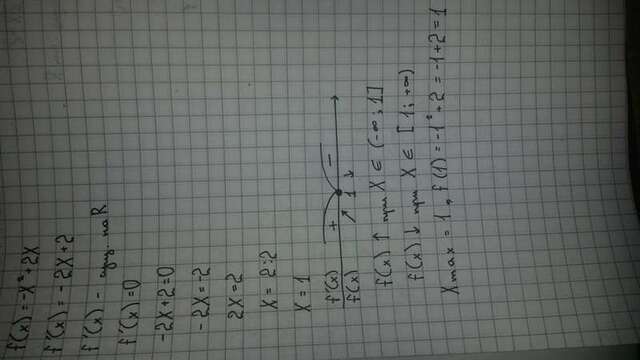 f(x) = -x² + 2x
f'(x) = -2x + 2
f'(x) - сущ. на R
f'(x) = 0
-2x + 2 = 0
-2x = -2
2x = 2
x = 2:2
x = 1
f'(x) + -
f(x) ↗ 1 ↘
f(x) ↑ при x ∈ (-∞; 1]
f(x) ↓ при x ∈ [1; +∞)
Xmax = 1, f(1) = -1² + 2 = -1 + 2 = 1